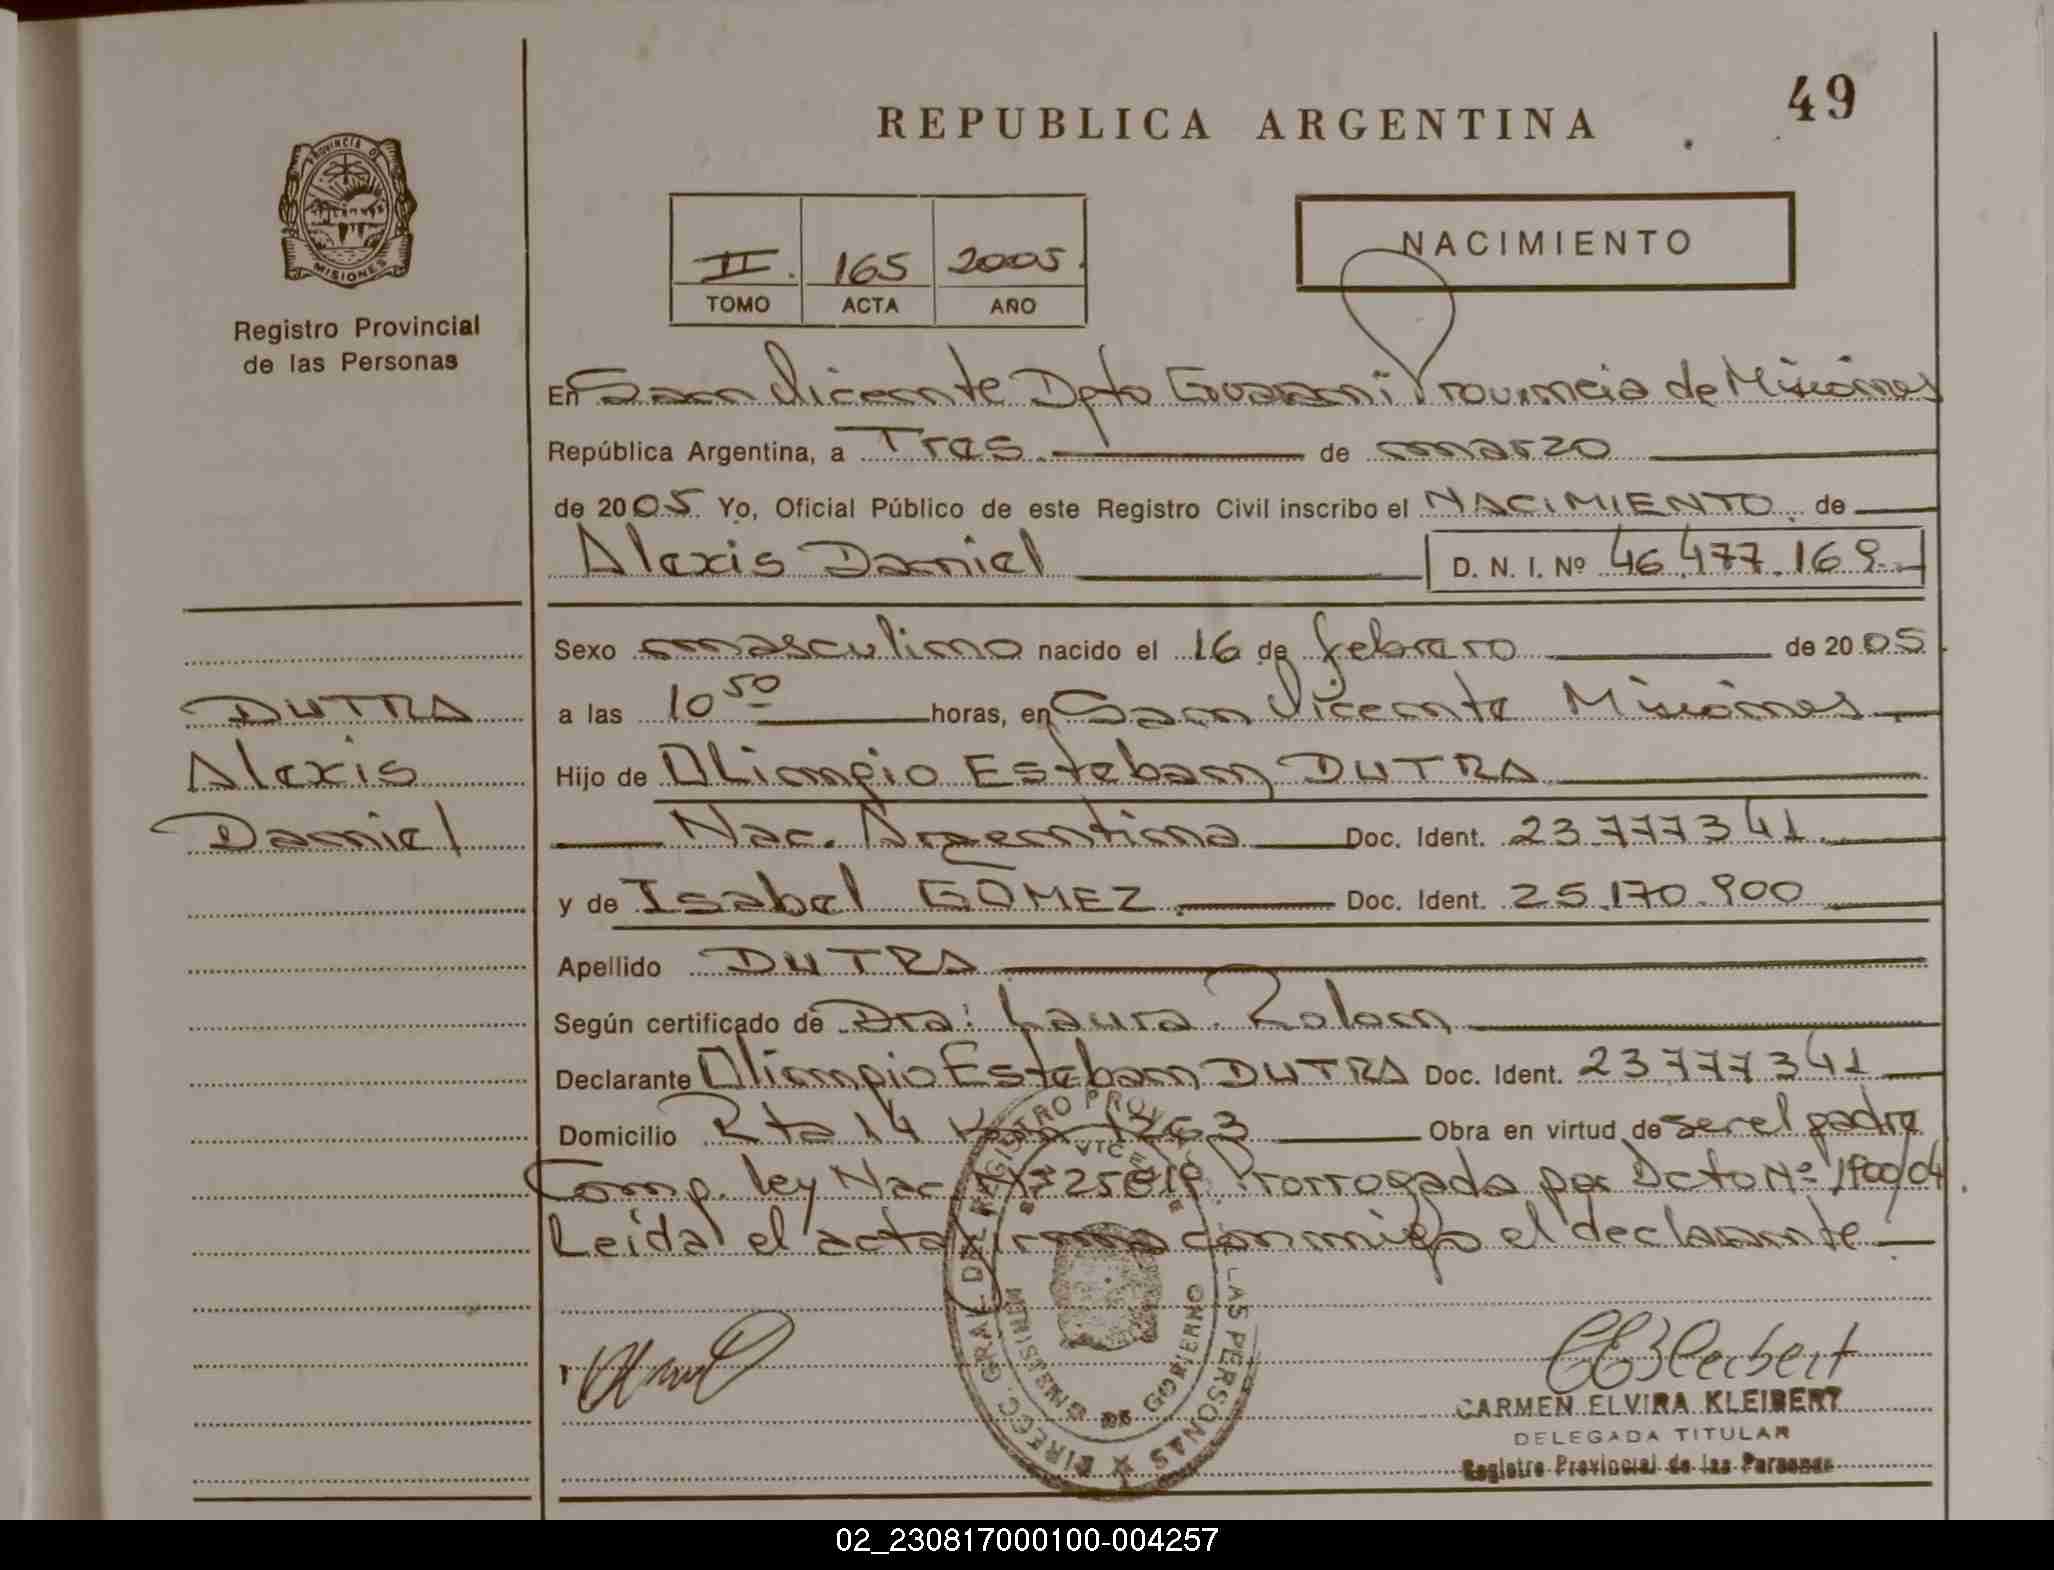 49
REPUBLICA ARGENTINA
PROVINCIA DE
MISIONES
Registro Provincial
de las Personas
II. 165 2005.
TOMO ACTA AÑO
NACIMIENTO
En San Vicente Dpto Guarani Provincia de Misiones
República Argentina, a Tres de marzo
de 2005 Yo, Oficial Público de este Registro Civil inscribo el NACIMIENTO de
Alexis Daniel D. N. I. Nº 46.477.169
Sexo masculino nacido el 16 de febrero de 2005
a las 10 50 horas, en San Vicente Misiones
Hijo de Olimpio Esteban DUTRA
Nac. Argentina Doc. Ident. 23.777341
y de Isabel GOMEZ Doc. Ident. 25.170.900
Apellido DUTRA
Según certificado de Dra: Laura Rolon
Declarante Olimpio Esteban DUTRA Doc. Ident. 23777341
Domicilio Rta 14 Km 1263 Obra en virtud de ser el padre
Comp. ley Nac Nº 25819 Prorrogada por Dcto Nº 1900/04.
Leida el acta firma conmigo el declarante
DUTRA
Alexis
Daniel
DIRECC. GRAL DEL REGISTRO PROV LAS PERSONAS
VICE MINISTERIO DE GOBIERNO
CARMEN ELVIRA KLEIBERT
DELEGADA TITULAR
Registro Provincial de las Personas
02_230817000100-004257